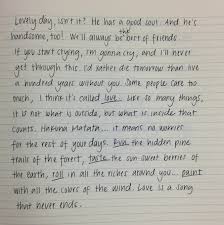 Lovely day, isn't it? He has a good soul. And he's
handsome, too! We'll always be the best of friends.
If you start crying, I'm gonna cry, and I'll never
get through this. I'd rather die tomorrow than live
a hundred years without you. Some people care too
much, I think it's called love. Like so many things,
it is not what is outside, but what is inside that
counts. Hakuna Matata... it means no worries
for the rest of your days. Run the hidden pine
trails of the forest, taste the sun sweet berries of
the earth, roll in all the riches around you... paint
with all the colors of the wind. Love is a song
that never ends.